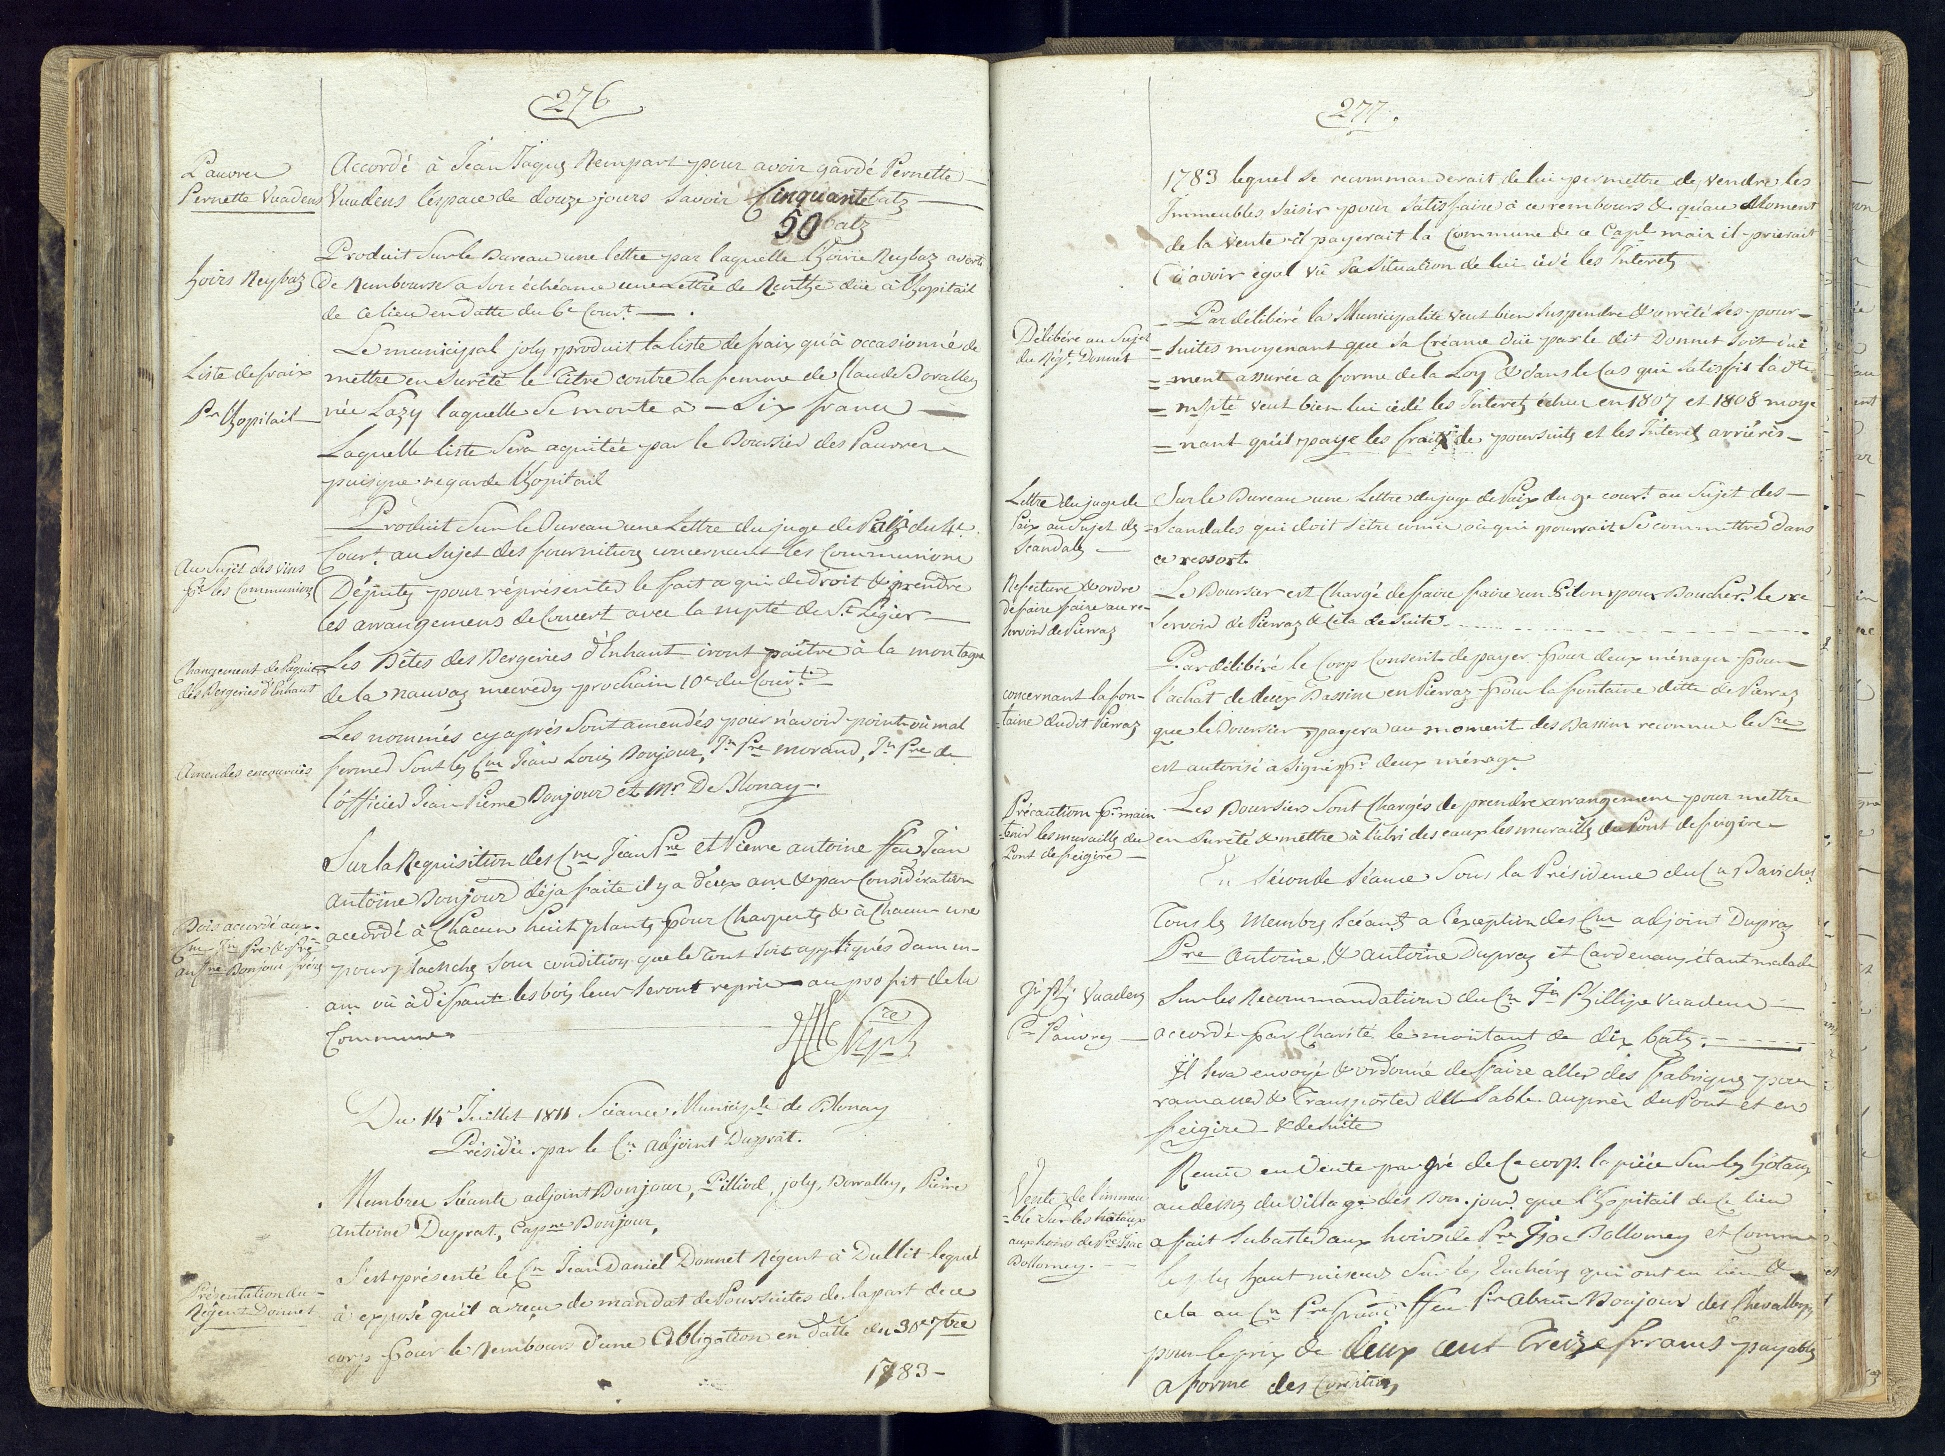 276
Pauvres
Pernette Vuadens
Accordé à Jean Jaques Rempart pour avoir gardé Pernette
Vuadens l'espace de douze jours savoir Cinquante batz
50 batz
hoirs Neybaz
Produit Sur le Bureau une lettre par laquelle l'hoirie Neybaz averti
de Rembourser a son échéance une Lettre de Renthe düe à l'hopitail
de ce lieu en datte du 6e Court.
Liste de frais
Pr. l'hopitail
Le municipal joly produit la liste de frais qu'à occasionné de
mettre en Sureté le titre contre la femme de Claude Dovalley
née Lazy laquelle Se monte à Six francs
Laquelle liste Sera aquitée par le Boursier des Pauvres
puisque regarde l'hopitail
Au Sujet des vins
pr. les Communions
Produit Sur le Bureau une Lettre du juge de Paix du 4e
Court. au Sujet des fournitures concernant les Communions
Députés pour réprésenter le fait a qui de droit & prendre
les arrangemens de Concert avec la mpté de St. Légier
Changement de Paquier
des Bergeries d'Enhaut
Les Bêtes des Bergeries d'Enhaut iront paître à la montagne
de la nauvaz mecredy prochain 10e du Court.
Amendes encourues
Les nommés cy après Sont amendés pour n'avoir point où mal
fermer Sont les Cns Jean Louis Bonjour, Jn Pre morand, Jn Pre de
l'officier Jean Pierre Bonjour et Mr De Blonay.
Bois accordé aux
Cns Jn Pre & Pre
antne Bonjour frères
Sur la Requisition des Cns Jean Pre et Pierre antoine ffeu Jean
antoine Bonjour déja faite il y a deux ans & par Considération
accordé à Chacun huit plantes pour Charpente & à Chacun une
pour planches Sous condition que le Tout Soit appliqués dans un
an où à défaut les bois leur Seront repris au profit de la
Commune
Du 14e Juillet 1811 Séance Municiple de Blonay
Présidée par le Cn adjoint Duprat.
Membres Séants adjoint Bonjour, Pilliod, joly, Dovalley, Pierre
Antoine Duprat, Capne Bonjour,
Présentation du
Régent Donnet
S'est présenté le Cn Jean Daniel Donnet Régent à Dullit lequel
à exposé qu'il a reçu de mandat de Poursuites de la part de ce
corp pour le Rembours d'une Obligation en datte du 30e 7bre
1783
277.
1783 lequel Se recommanderait de lui permettre de vendre les
Immeubles Saisir pour Satisfaire à ce rembours & qu'au Moment
de la vente il payerait la Commune de ce Capl mais il prierait
d'avoir égal vû Sa Situation de lui cédé les Interets
Délibére au Sujet
du Régt Donnet
Par délibéré la Municipalité veut bien Suspendre & arrêté Ses pour-
suites moyenant que Sa Créance düe par le dit Donnet Soit dûe
ment assurée a forme de la Loy & dans le Cas qui Satisfit la dte
mpté veut bien lui cédé les Interets échus en 1807 et 1808 moye
nant qu'il paye les frais de poursuites et les Interets arriérés
Lettre du juge de
Paix au Sujet des
Scandales
Sur le Bureau une Lettre du juge de Paix du 9e court. au Sujet des
Scandales qui doit S'etre comis où qui pourrait Se commettre dans
ce ressort.
Refecture & ordre
de faire faire au re-
servoir de Pierraz
Le Boursier est Chargé de faire faire un Gilon pour Boucher le re
servoir de Pierraz & Cela de Suite
concernant la fon-
taine dudit Pierraz
Par délibéré le Corp Consent de payer pour deux ménages pour
l'achat de deux Bassins en Pierraz pour la fontaine ditte de Pierraz
que le Boursier payera au moment des Bassins reconnus le Sre
est autorisé a Signé pr. deux ménage
Précaution pr. main
tenir les murailles du
Pont de feigire
Les Boursiers Sont Chargés de prendre arrangemens pour mettre
en Sureté & mettre à l'abri des eaux les murailles du Pont de feigire
Seconde Séance Sous la Présidence du Cn
Tous les Membres Séants a l'exception des Cns adjoint Dupraz
Pre Antoine & antoine Dupraz et Cardenaux étant malade
Jn Ph. Vuadens
Pr Pauvres
Sur les Recommandations du Cn Jn Phillipe Vuadens
accordé par Charité le montant de dix batz.
Il Sera envoyé & ordonné de faire aller des fabriques pour
ramasser & Transporter du Sable auprès du Pont et en
feigire & de Suite
Vente de l'immeu
ble Sur les hôtaux
aux hoirs de Pre Isac
Dollomey.
Remis en Vente par gré de Ce corp. la pièce Sur les hôtaux
au dessus du Village des Bon-jour que l'Hopitail de Ce lieu
a fait Subaster aux hoirs de Pre Isac Dollomey et Comme
les plus haut miseurs Sur les Enchères qui ont eu lieu &
cela au Cn Pre franç ffeu Pre Abrm Bonjour des Chevalleyres
pour le prix de deux cent Treize francs payables
a forme des Conditions